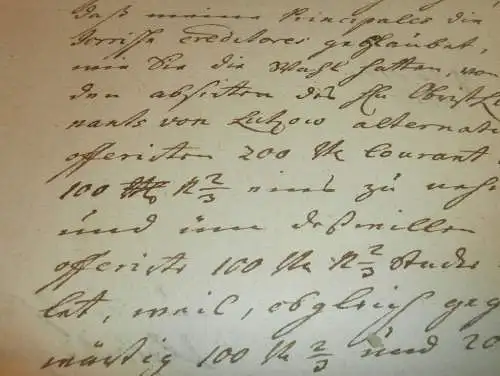 daß meine Principales die
Creditores geglaubet,
wie Sie die Wahl hatten, von
den des Hn Obrist
nants von Lützow alternat
offerirten 200 Rt Courant
100 N 2/3 eins zu neh
und üm deßwillen
offerirte 100 Rt N 2/3
let, weil, obgleich geg
wärtig 100 Rt 2/3 und 20